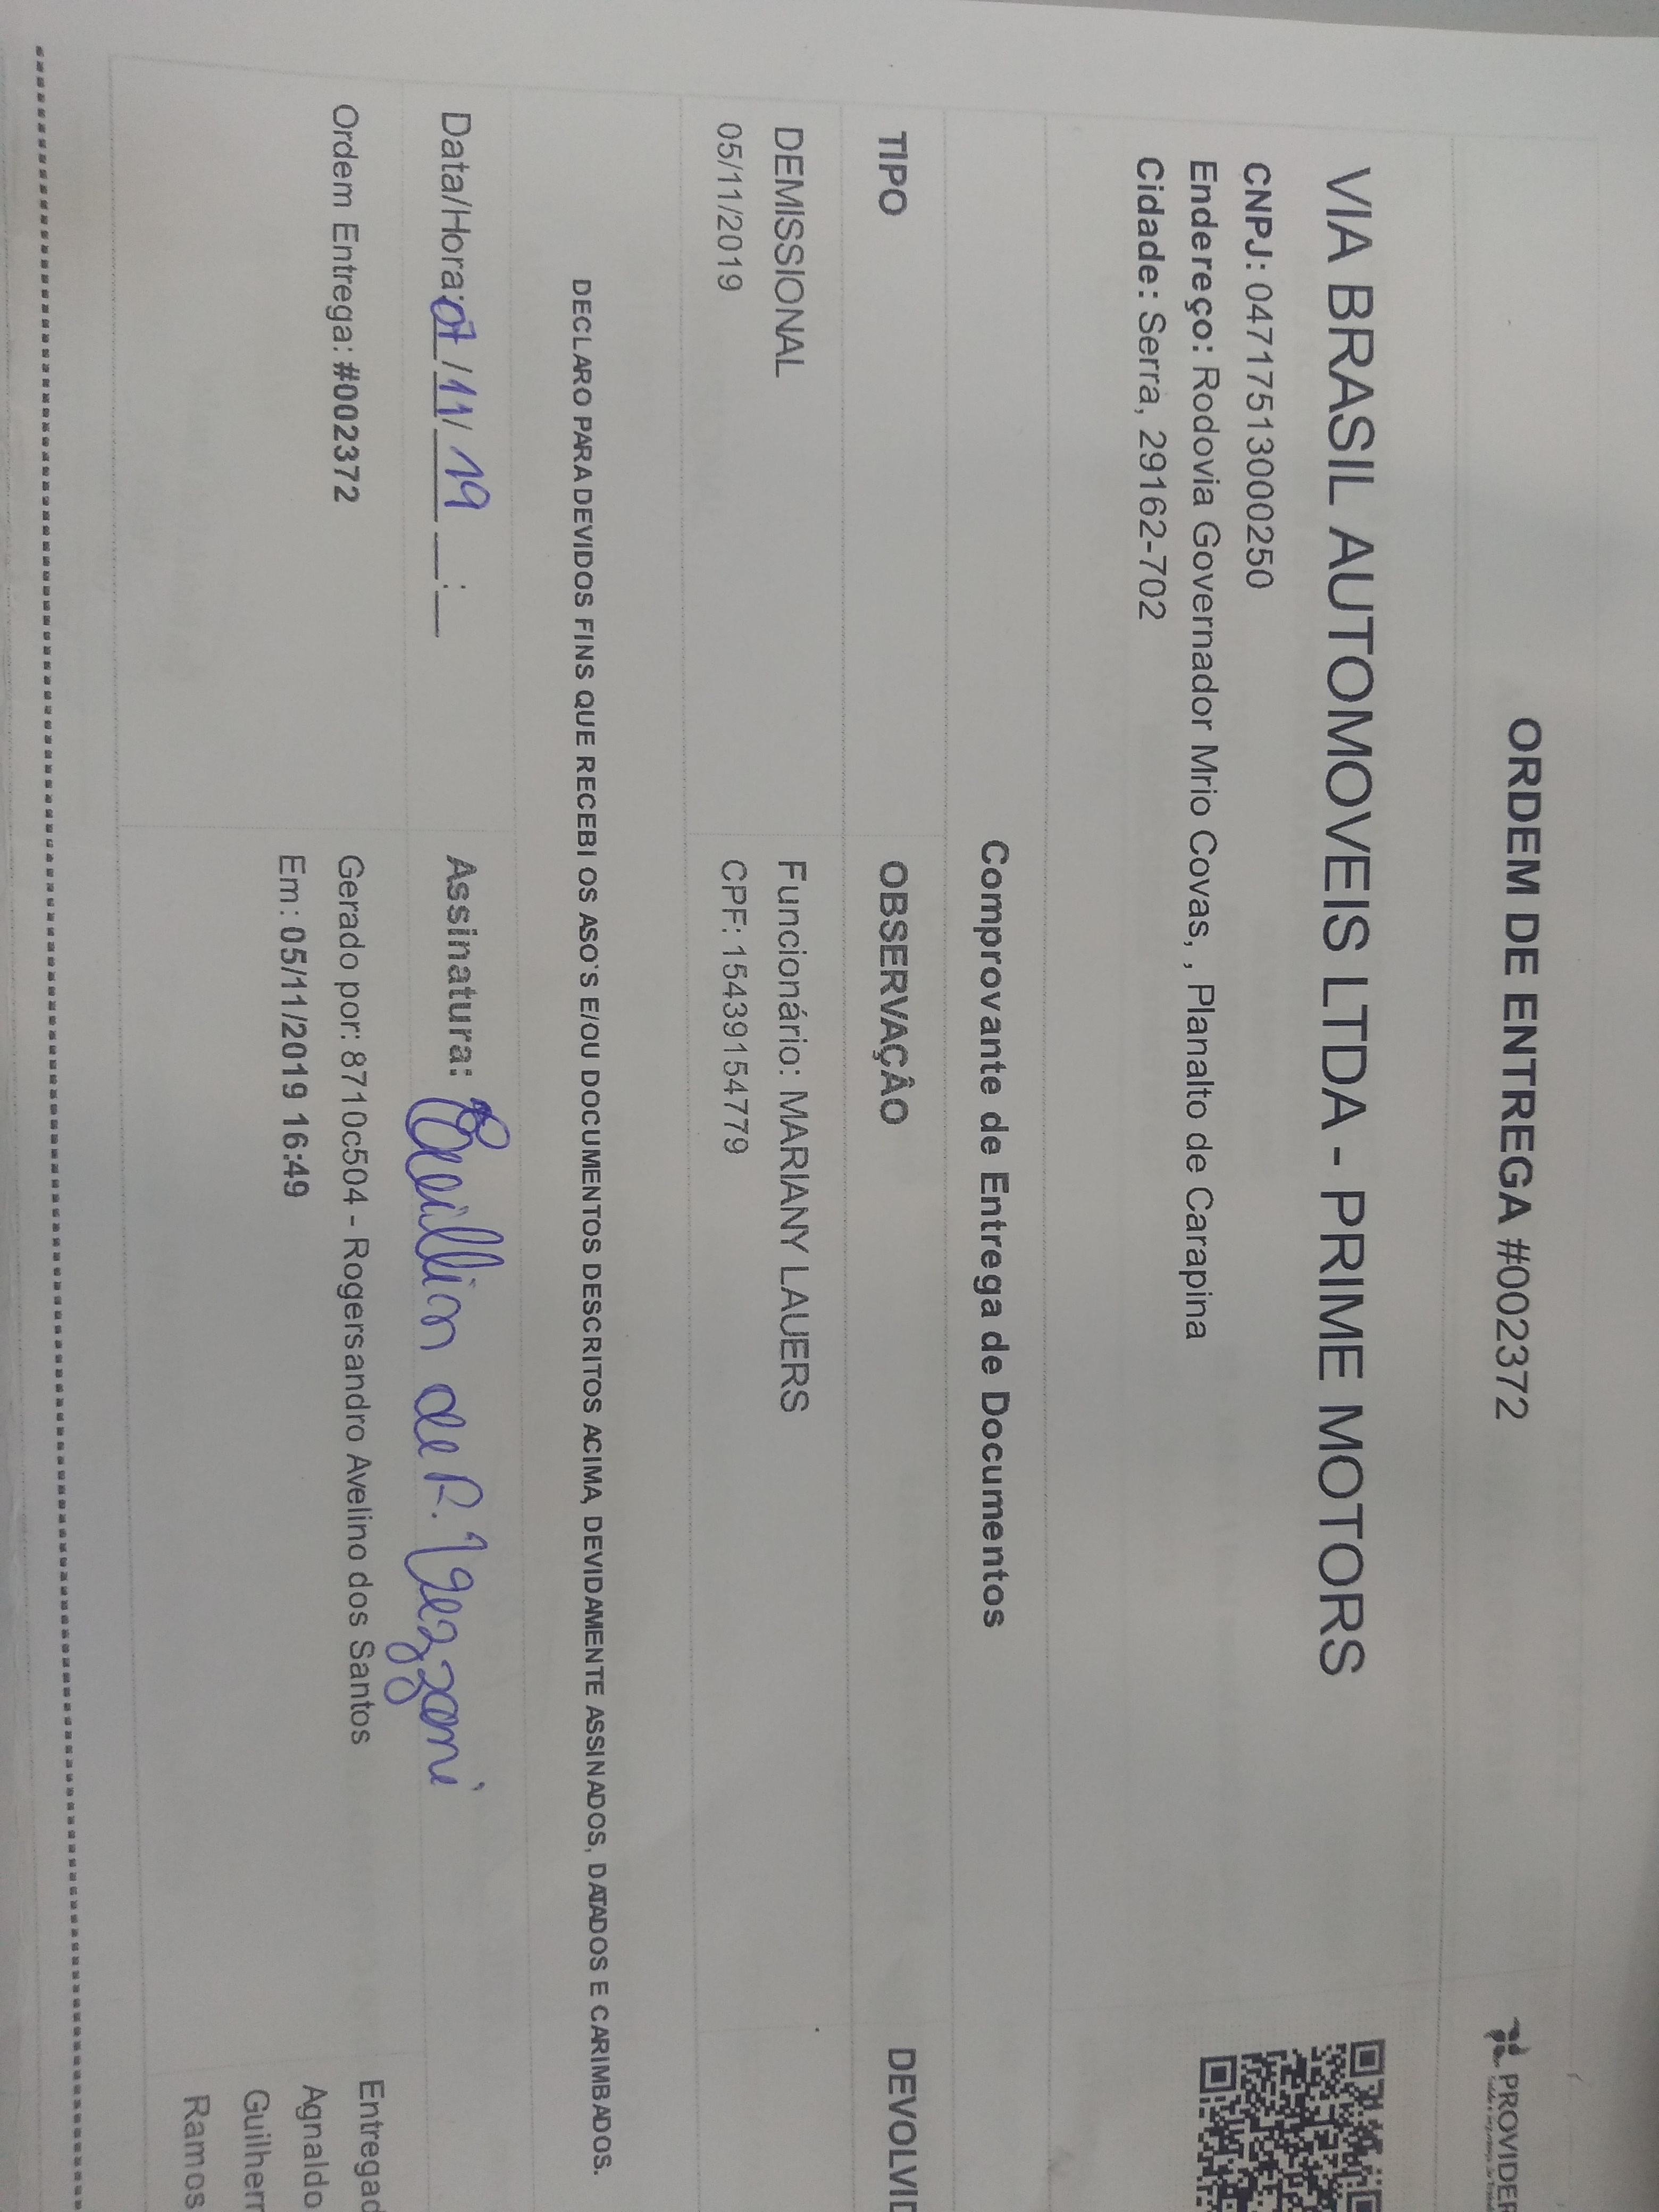 ORDEM DE ENTREGA #002372
PROVIDER
VIA BRASIL AUTOMOVEIS LTDA - PRIME MOTORS
CNPJ: 04717513000250
Endereço: Rodovia Governador Mrio Covas, , Planalto de Carapina
Cidade: Serra, 29162-702
Comprovante de Entrega de Documentos
TIPO OBSERVAÇÂO DEVOLVID
DEMISSIONAL Funcionário: MARIANY LAUERS
05/11/2019 CPF: 15439154779
DECLARO PARA DEVIDOS FINS QUE RECEBI OS ASO'S E/OU DOCUMENTOS DESCRITOS ACIMA, DEVIDAMENTE ASSINADOS, DATADOS E CARIMBADOS.
Data/Hora: 07/11/19 __:__ Assinatura: de P. Vezzoni
Ordem Entrega: #002372 Gerado por: 8710c504 - Rogersandro Avelino dos Santos
Em: 05/11/2019 16:49
Entregad
Agnaldo
Guilherm
Ramos